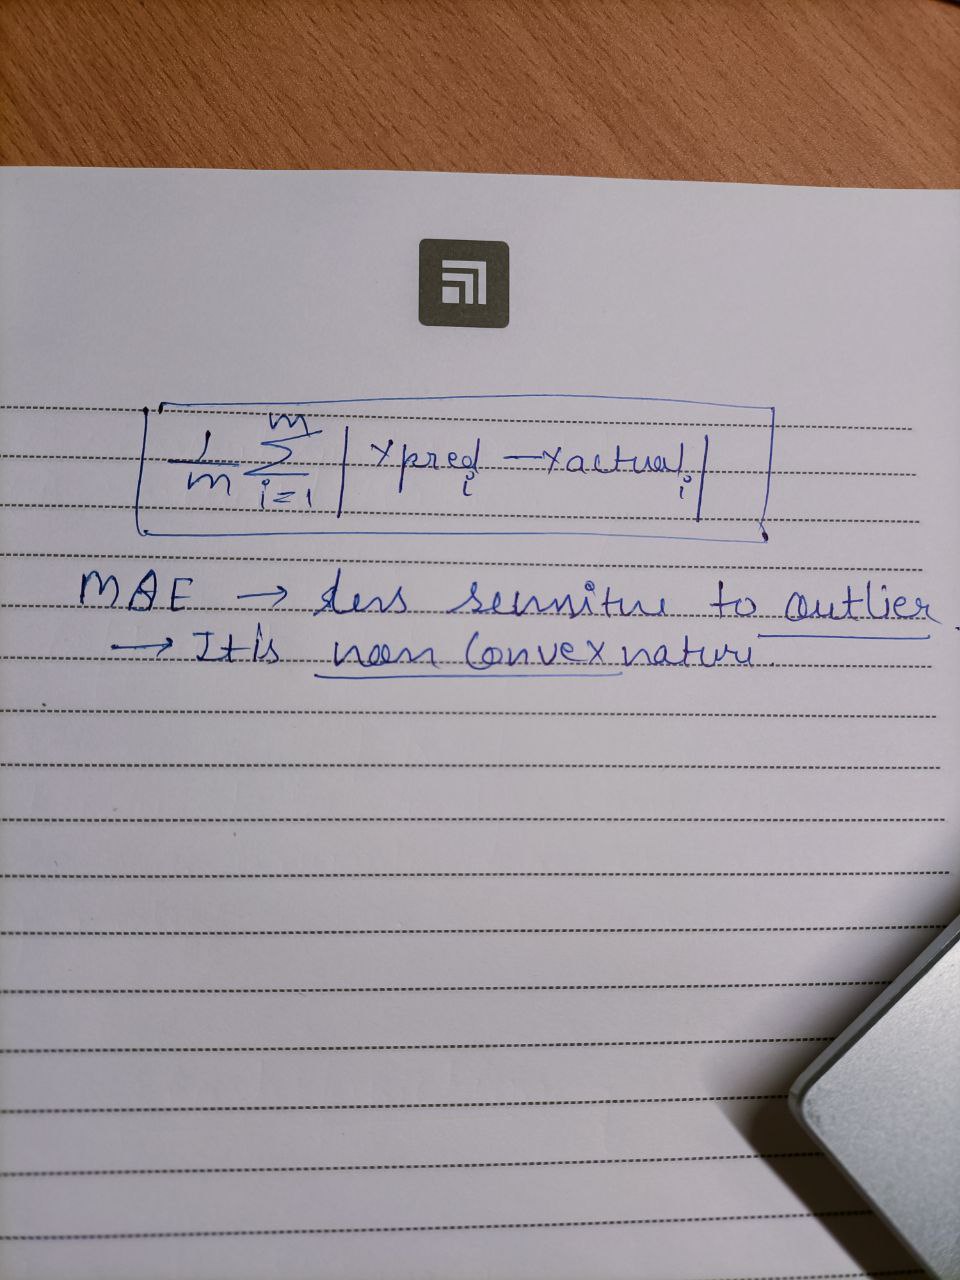 1/m Σ i=1 m | xpred i − xactual i |
MAE → less sensitive to outlier.
→ It is non Convex nature.